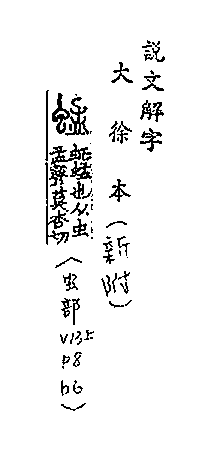 説文解字
大徐本(新附)
蜢
虴蜢也从虫
孟聲莫杏切
〈虫部
V13上
P8
b6〉